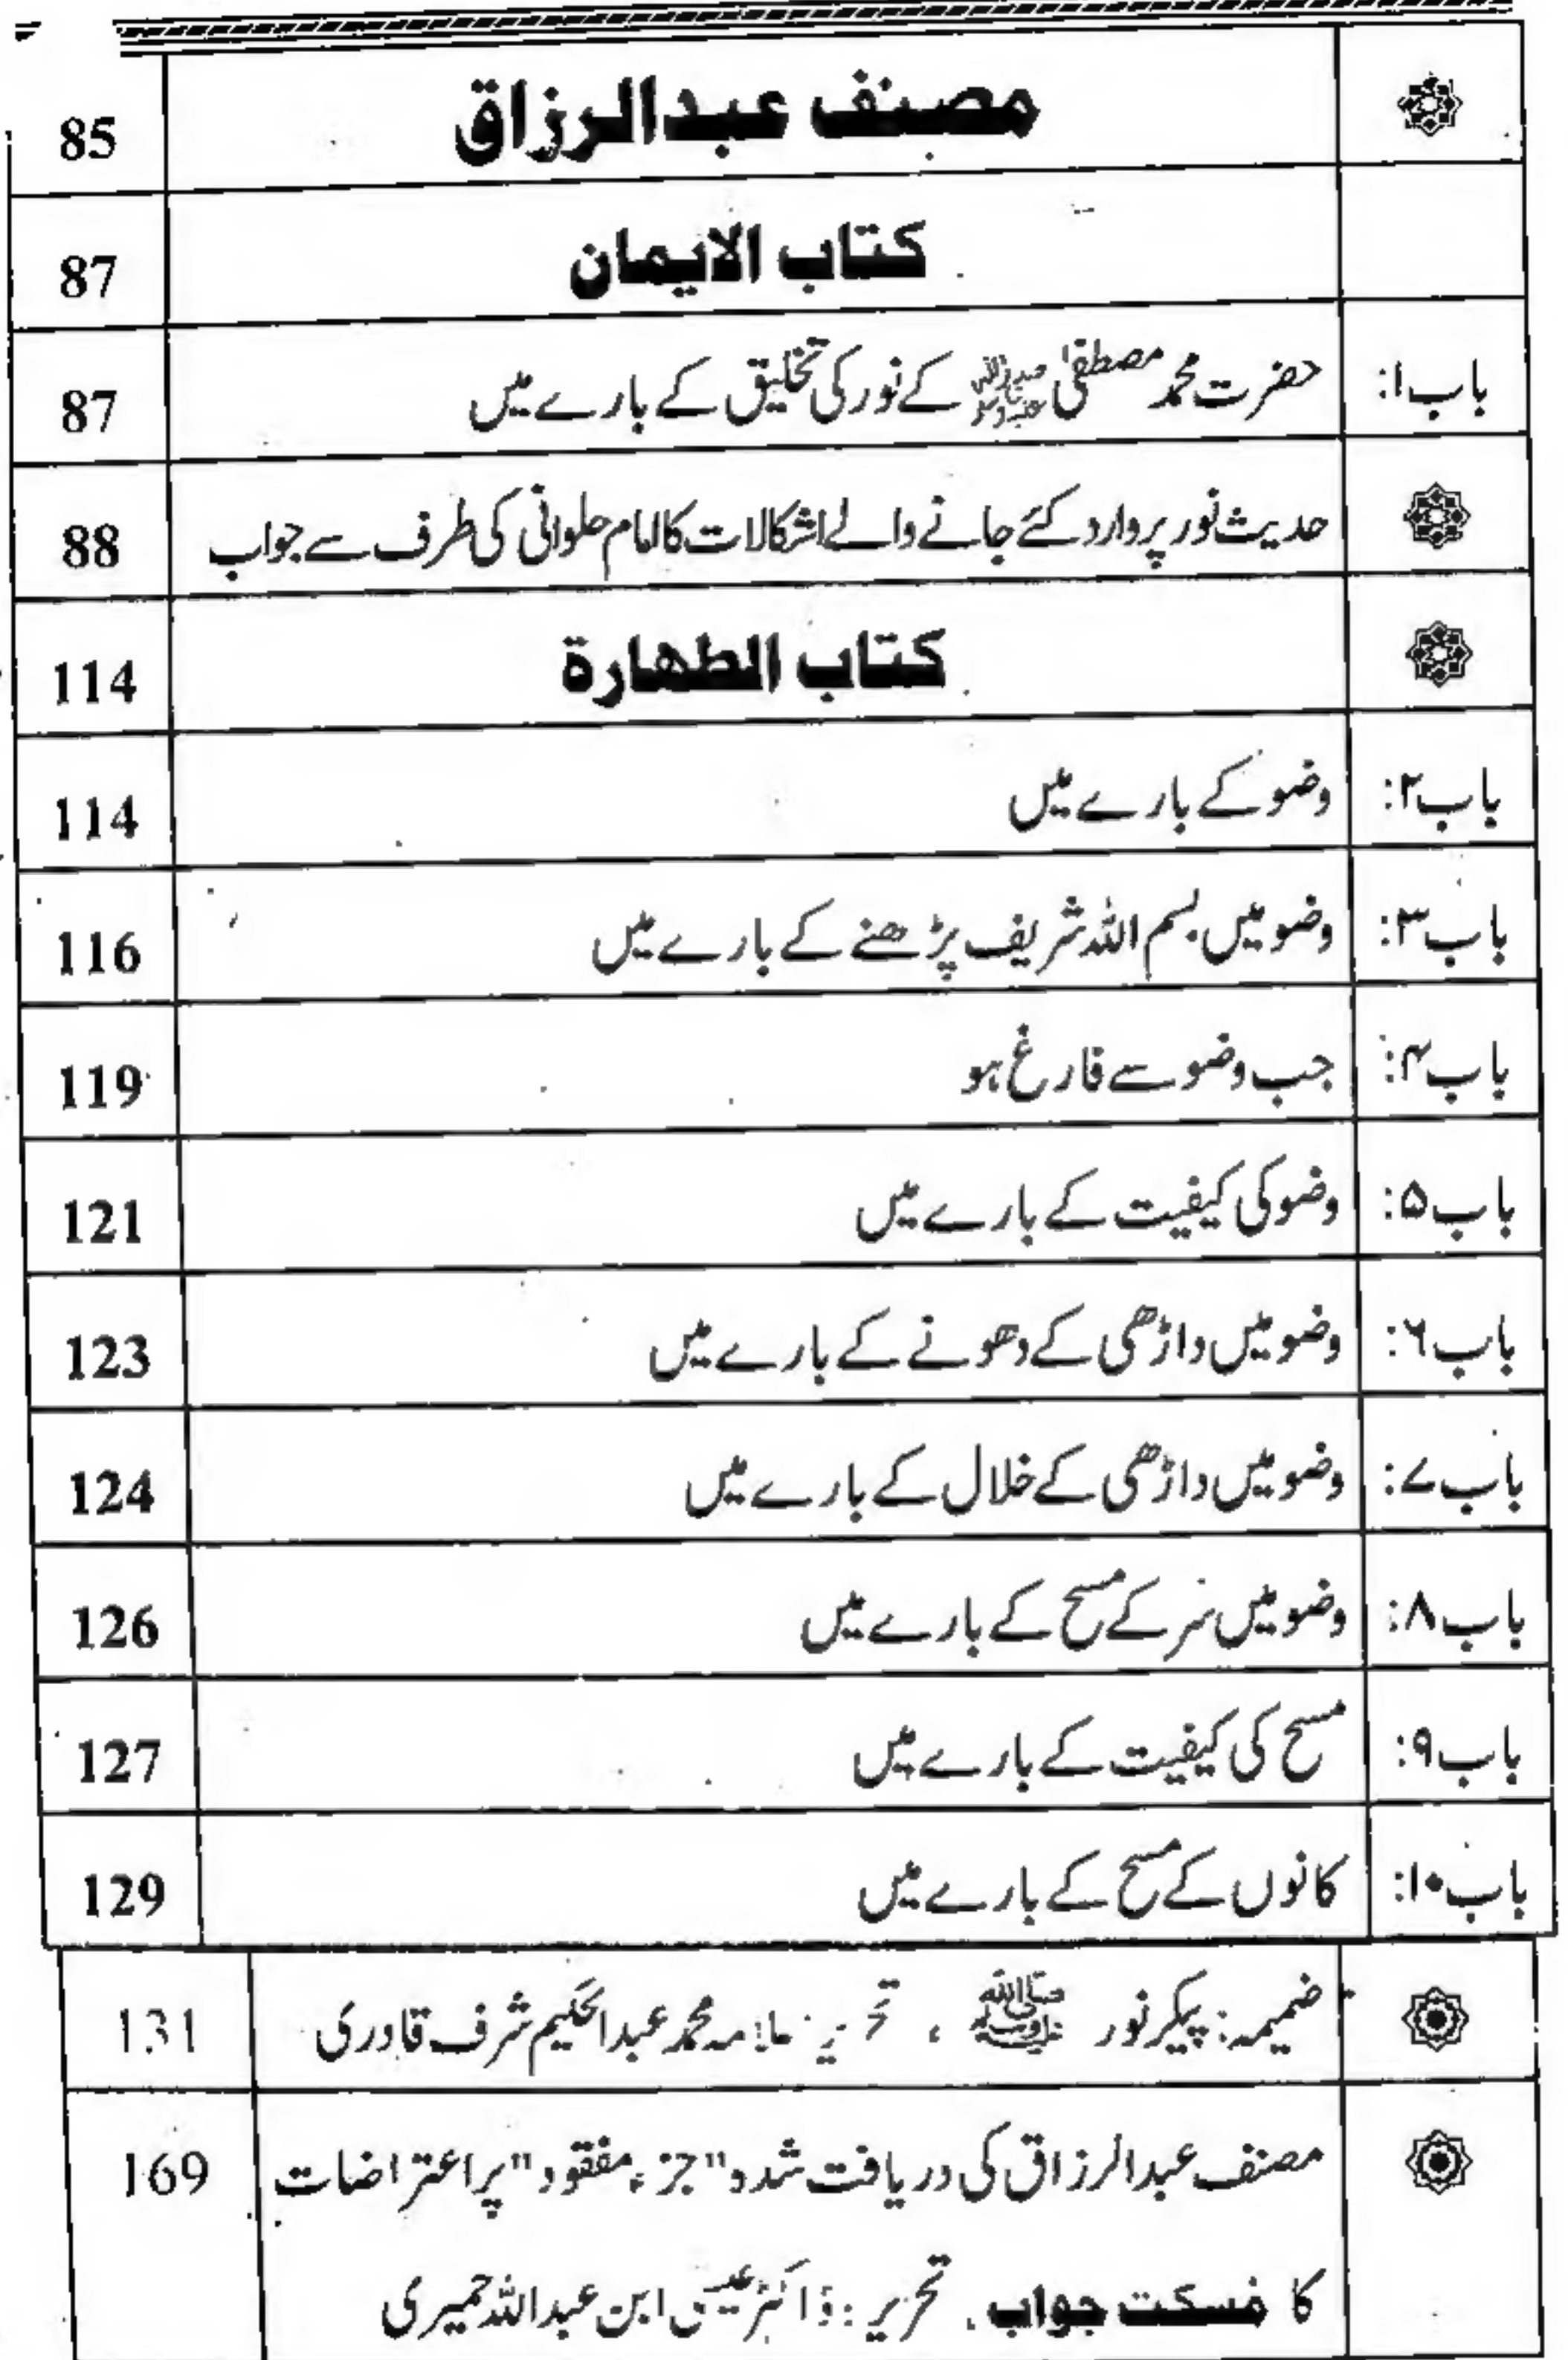 مصنف عبدالرزاق 85
کتاب الایمان 87
باب۱: حضرت محمد مصطفیٰ ﷺ کے نور کی تخلیق کے بارے میں 87
حدیث نور پر وارد کئے جانے والے اشکالات کا امام حلوانی کی طرف سے جواب 88
کتاب الطھارة 114
باب۲: وضو کے بارے میں 114
باب۳: وضو میں بسم اللہ شریف پڑھنے کے بارے میں 116
باب۴: جب وضو سے فارغ ہو 119
باب۵: وضو کی کیفیت کے بارے میں 121
باب۶: وضو میں داڑھی کے دھونے کے بارے میں 123
باب۷: وضو میں داڑھی کے خلال کے بارے میں 124
باب۸: وضو میں سر کے مسح کے بارے میں 126
باب۹: مسح کی کیفیت کے بارے میں 127
باب۱۰: کانوں کے مسح کے بارے میں 129
ضمیمہ: پیکر نور ﷺ ، تحریر: علامہ محمد عبدالحکیم شرف قادری 131
مصنف عبدالرزاق کی دریافت شدہ "جزء مفقود" پر اعتراضات 169
کا مسکت جواب. تحریر: ڈاکٹر عیسیٰ ابن عبداللہ حمیری